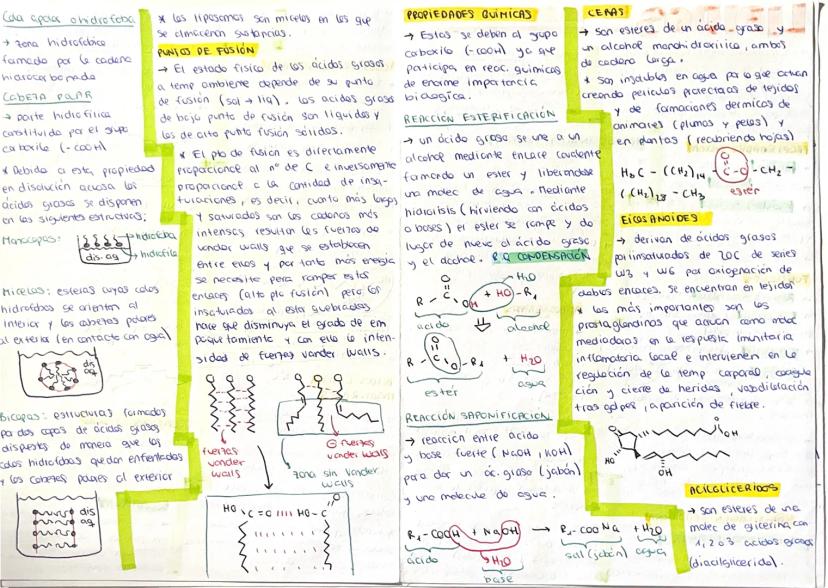 Cola apolar o hidrofoba
→ zona hidrofóbica
formada por la cadena
hidrocarbonada
CABEZA POLAR
→ parte hidrofílica
constituida por el grupo
carboxilo (-COOH)
* Debido a esta propiedad
en disolución acuosa los
ácidos grasos se disponen
en las siguientes estructuras:
Monocapas:
hidrofoba
hidrofila
dis. aq
Micelas: esferas cuyas colas
hidrofobas se orientan al
interior y las cabezas polares
al exterior (en contacto con agua)
dis
aq
Bicapas: estructuras formadas
por dos capas de ácidos grasos
dispuestos de manera que las
colas hidrofobas quedan enfrentadas
y las cabezas polares al exterior
dis
aq
* Los liposomas son micelas en los que
se almacenan sustancias.
PUNTOS DE FUSIÓN
→ El estado físico de los ácidos grasos
a temp ambiente depende de su punto
de fusión (sol → liq). Los acidos grasos
de bajo punto de fusión son líquidos y
los de alto punto fusión sólidos.
* El pto de fusión es directamente
proporcional al nº de C e inversamente
proporcional a la cantidad de insa-
turaciones, es decir, cuanto más largas
y saturadas son las cadenas más
intensas resultan las fuerzas de
vander walls que se establecen
entre ellos y por tanto más energia
se necesita para romper estos
enlaces (alto pto fusión) pero los
insaturados al esta quebrados
hace que disminuya el grado de em
paquetamiento y con ello la inten-
sidad de fuerzas vander walls.
fuerzas
vander
walls
⊖ fuerzas
vander walls
zona sin vander
walls
HO
C=O IIII HO-C
O
PROPIEDADES QUÍMICAS
→ Estas se deben al grupo
carboxilo (-COOH) ya que
participa en reac. químicas
de enorme importancia
biológica.
REACCIÓN ESTERIFICACIÓN
→ un ácido graso se une a un
alcohol mediante enlace covalente
formando un ester y liberandose
una molec de agua. Mediante
hidrolisis (hirviendo con ácidos
o bases) el ester se rompe y da
lugar de nuevo al ácido graso
y el alcohol. RQ CONDENSACIÓN
H₂O
R - C O OH + HO - R₁
ácido
alcohol
R - C O O - R₁ + H₂O
ester
agua
REACCIÓN SAPONIFICACIÓN
→ reacción entre ácido
y base fuerte (NaOH, KOH)
para dar un ác. graso (jabón)
y una molecula de agua.
R₁-COOH + NaOH → R₁-COONa + H₂O
ácido
H₂O
base
sal (jabón)
agua
CERAS
→ son esteres de un ácido graso y
un alcohol monohidroxílico, ambos
de cadena larga.
* son insolubles en agua por lo que actuan
creando peliculas protectoras de tejidos
y de formaciones dérmicas de
animales (plumas y pelos) y
en plantas (recubriendo hojas)
H₃C - (CH₂)₁₄ - C O - O - CH₂ -
(CH₂)₂₈ - CH₃
ester
EICOSANOIDES
→ derivan de ácidos grasos
poliinsaturados de 20C de series
W3 y W6 por oxigenación de
dobles enlaces. Se encuentran en tejidos
* los más importantes son las
prostaglandinas que actuan como molec
mediadoras en la respuesta inmunitaria
inflamatoria local e intervienen en la
regulación de la temp corporal, coagula
ción y cierre de heridas, vasodilatación
tras golpes, aparición de fiebre.
O
O
OH
HO
OH
ACILGLICERIDOS
→ son esteres de una
molec de glicerina con
1, 2 o 3 acidos grasos
(diacilglicerido).